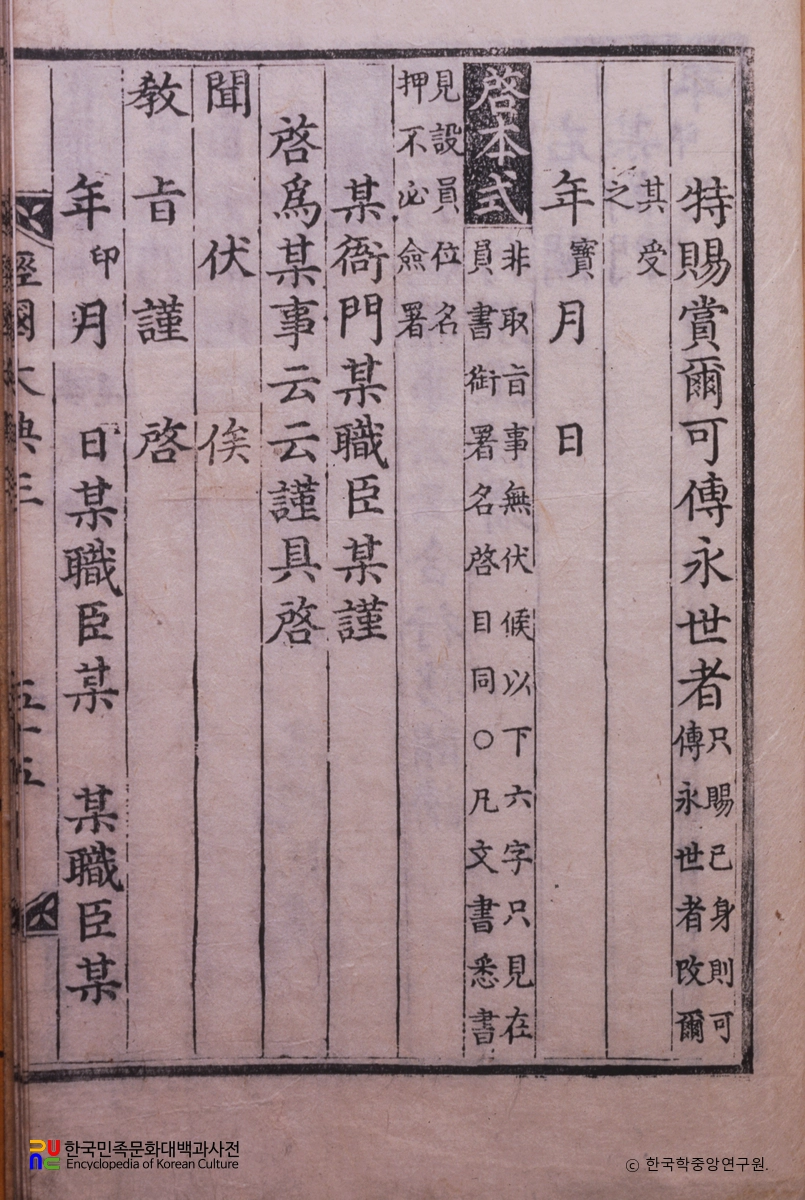 特賜賞爾可傳永世者只賜已身則可傳永世者改爾
其受之
年寶月　日
啓本式非取旨事無伏候以下六字只見在員書銜署名啓目同○凡文書悉書
見設員位名押不必僉署
某衙門某職臣某謹
啓爲某事云云謹具啓
聞　伏　俟
敎旨謹　啓
年印月　日某職臣某　某職臣某
經國大典三　五十五
한국민족문화대백과사전
Encyclopedia of Korean Culture
ⓒ 한국학중앙연구원.